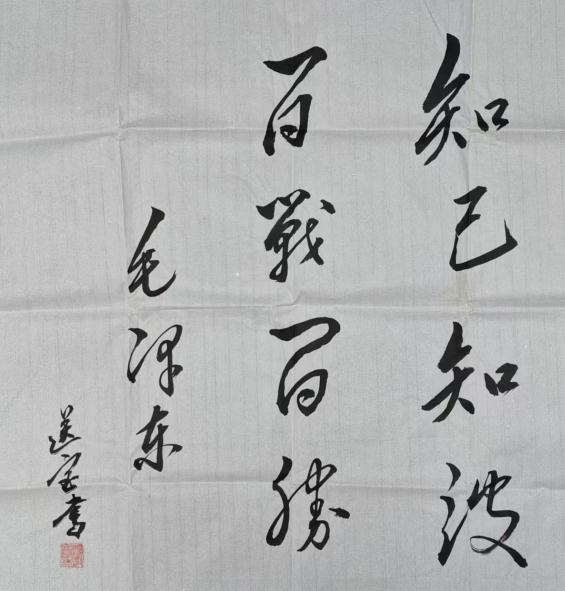 知己知彼
百戰百勝
毛泽东
書